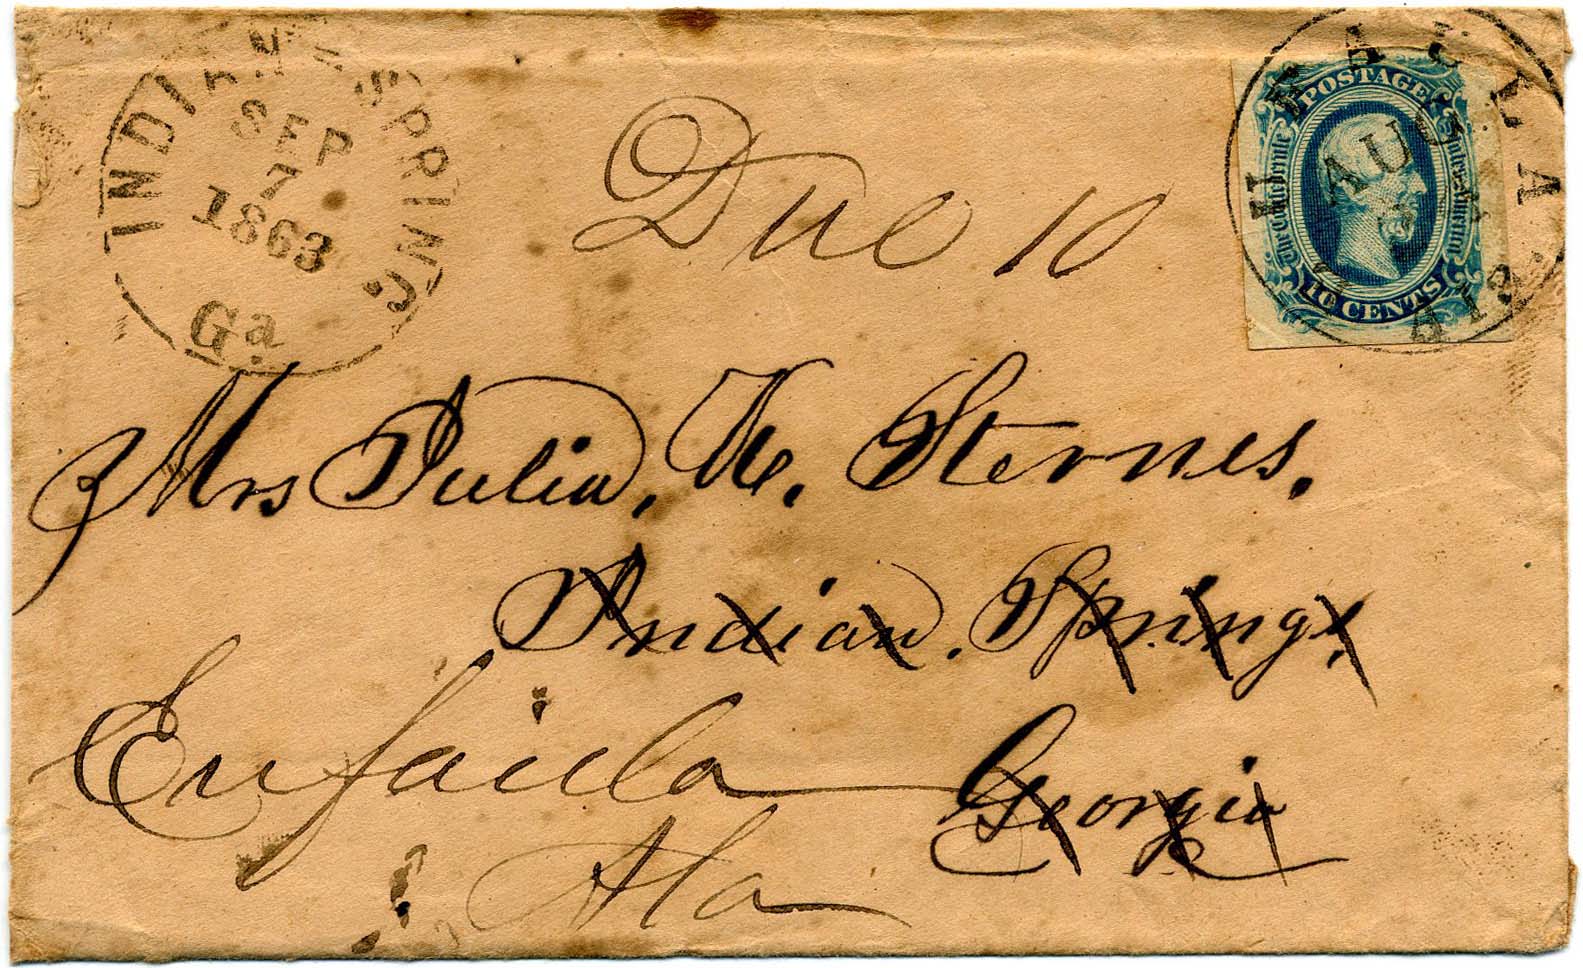 INDIAN SPRING
SEP
7
1863
Ga.
Due 10
POSTAGE
The Confederate States of America
10 CENTS
AUG
Mrs Julia, H. Sternes.
Indian. Springs,
Georgia
Eufaula
Ala